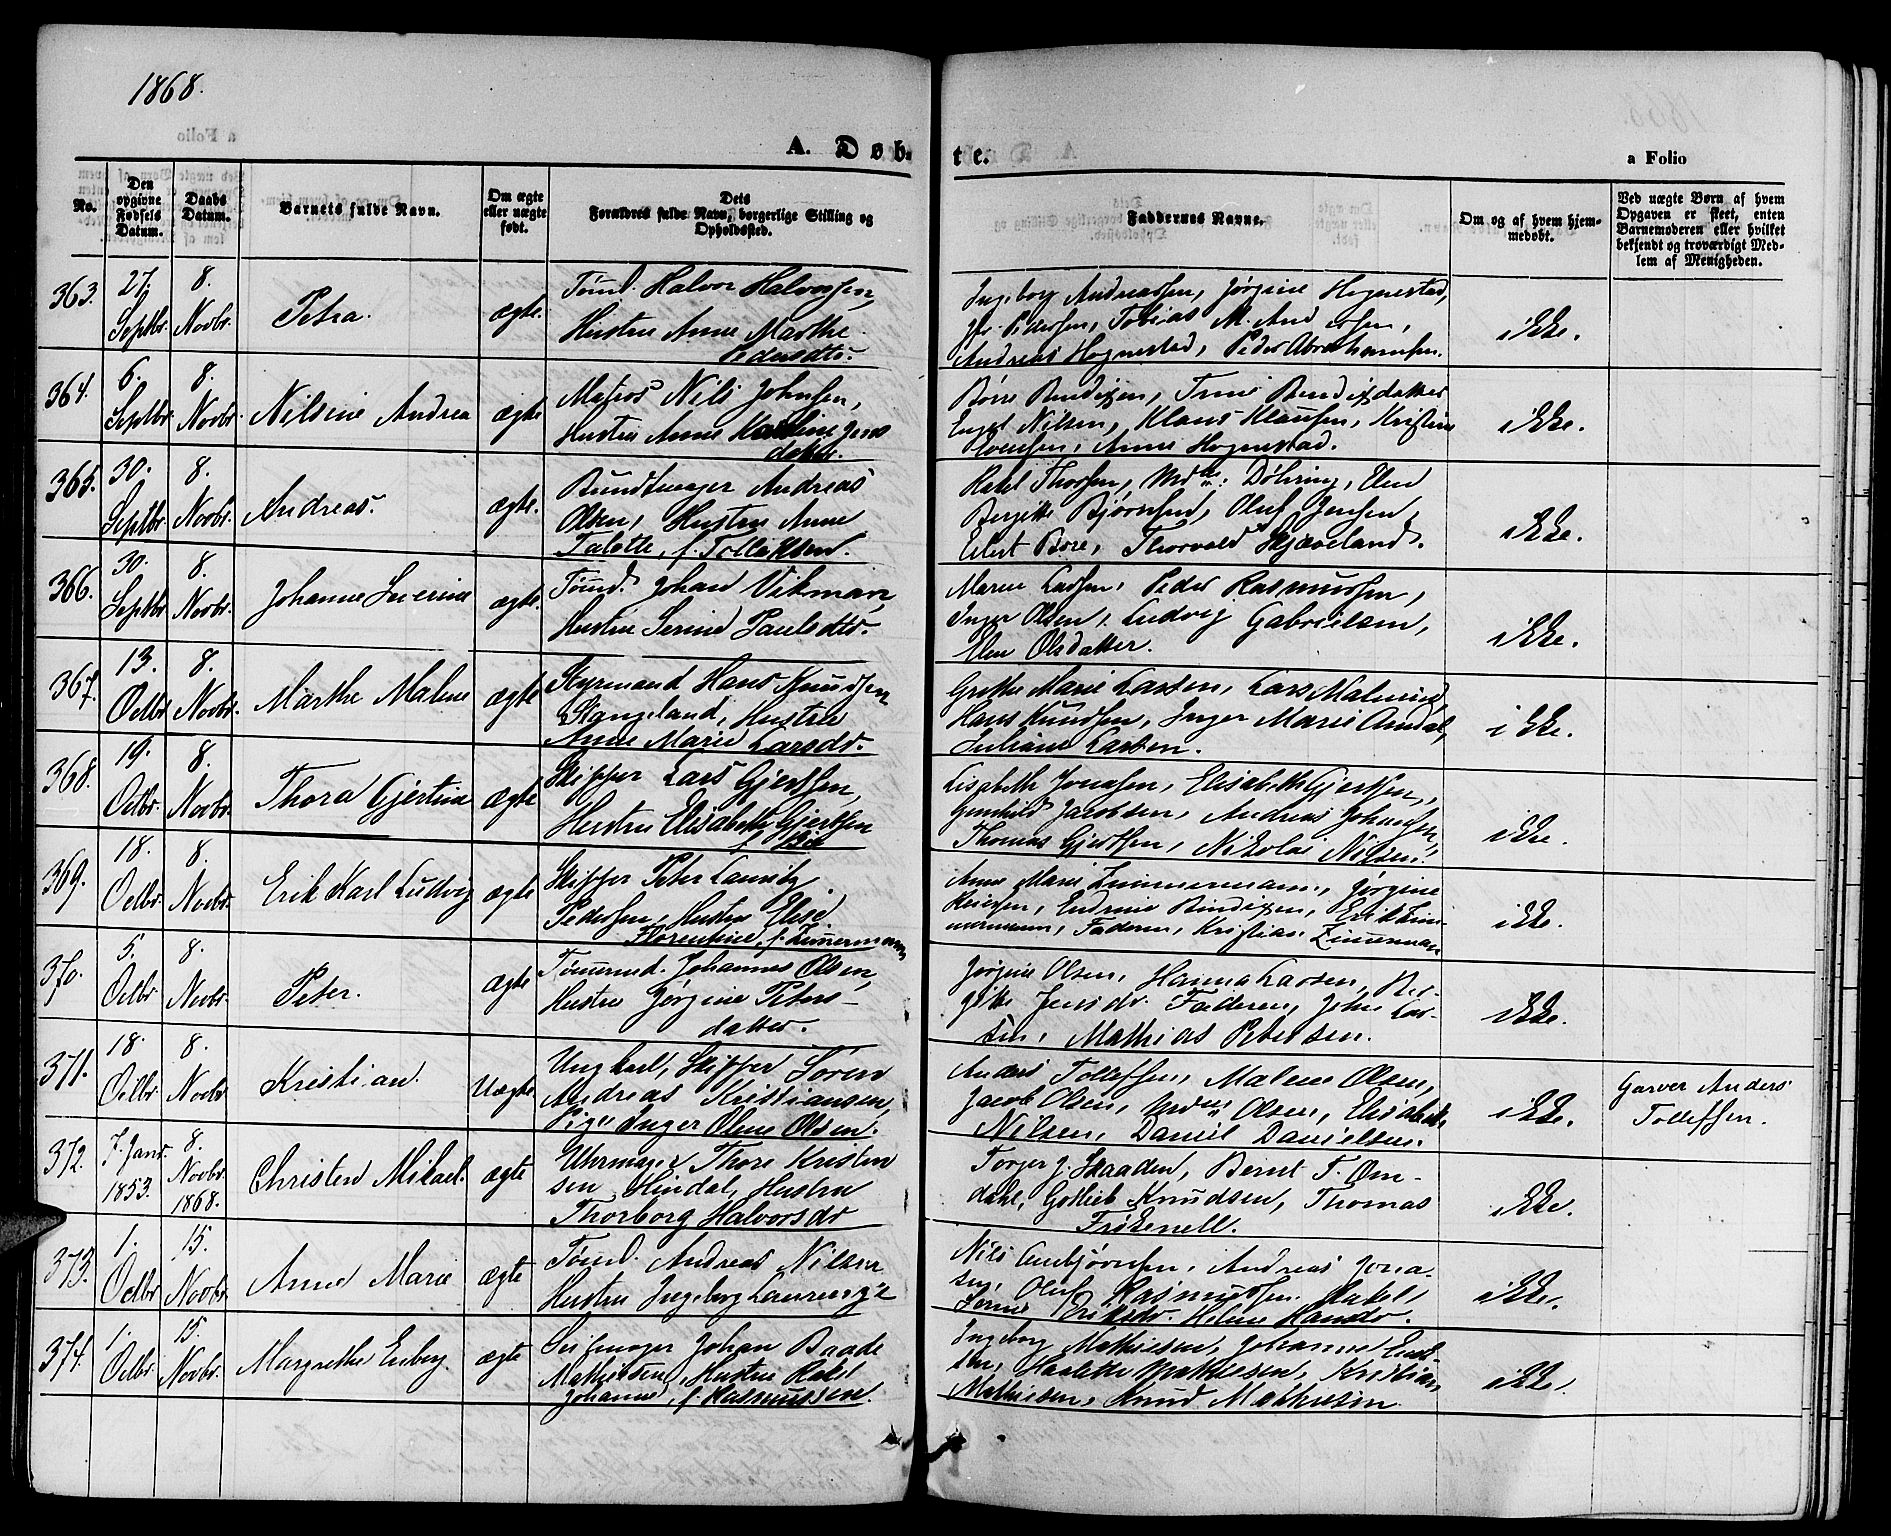 1868.
A. Døb-
te.
a Folio
No.
Den opgivne Fødsels Datum.
Daabs Datum.
Barnets fulde Navn.
Om ægte eller uægte født.
Dets Forældres fulde Navn, borgerlige Stilling og Opholdssted.
Faddernes Navne.
Om og af hvem hjemmedøbt.
Ved uægte Børn af hvem Opgaven er skeet, enten Barnemoderen eller hvilket bekjendt og troværdigt Medlem af Menigheden.
363. 27. Septbr. 8. Novbr. Petra. ægte.
Tømd. Halvor Halvorsen,
Hustru Anne Marthe
Pedersdtr.
Ingeborg Andreassen, Jørgine Hognestad,
Pedersen, Tobias M. Andersen,
Andreas Hognestad, Peder Abrahamsen.
ikke.
364. 6. Septbr. 8. Novbr. Nilsine Andrea ægte
Matros Nils Johnsen,
Hustru Anne Karline Jens
datter.
Børre Bendixen, Trine Bendixdatter
Engel Nilsen, Klaus Klausen, Kristine
Svensen, Anne Hognestad.
ikke.
365. 30. Septbr. 8. Novbr. Andreas. ægte.
Bundtmager Andreas
Olsen, Hustru Anne
Talette, f. Tollaksen.
Rakel Thorsen, Mdm: Döhring, Elen
Bergitte Bjørnsen, Oluf Jensen,
Eilert Bore, Thorvald Skjæveland.
ikke.
366. 30. Septbr. 8. Novbr. Johanne Severine ægte.
Tømd. Johan Vikman,
Hustru Serine Paulsdtr.
Maren Larsen, Peder Rasmussen,
Inger Olsen, Ludvig Gabrielsen,
Elen Olsdatter.
ikke.
367. 13. Octbr. 8. Novbr. Marthe Malene ægte
Styrmand Hans Knudsen
Stangeland, Hustru
Anne Marie Larsdr.
Grethe Marie Larsen, Lars Malmin,
Hans Knudsen, Inger Marie Aandal,
Juliane Larsen.
ikke.
368. 19. Octbr. 8. Novbr. Thora Gjertine ægte
Skipper Lars Gjertsen,
Hustru Elisabeth Gjertsen
Lisabeth Jonassen, Elisabeth Gjertsen,
Gunhild Jacobsen, Andreas Johansen,
Thomas Gjertsen, Nikolai Nilsen.
ikke.
369. 18. Octbr. 8. Novbr. Erik Karl Ludvig ægte
Skipper Peter Lauritz
Pedersen, Hustru Elise
Florentine, f. Zimermann
Anne Marie Zimmermann, Jørgine
Reiersen, Endrine Bendixen, Erik Zim-
mermann, Faderen, Kristian Zimerman
ikke.
370. 5. Octbr. 8. Novbr. Peter. ægte
Tømermd. Johannes Olsen,
Hustru Jørgine Peters-
datter.
Jørgine Olsen, Hanna Larsen, Ber-
gitte Jensdr. Faderen, John Lar-
sen, Mathias Petersen.
ikke.
371. 18. Octbr. 8. Novbr. Kristian. Uægte
Ungkarl, Skipper Søren
Andreas Kristiansen,
Pige Inger Olene Olsen.
Anders Tollefsen, Malene Olsen,
Jacob Olsen, Mdm Olsen, Elisabeth
Nilsen, Daniel Danielsen.
ikke.
Garver Anders
Tollefsen.
372. 7. Janr. 1853. 8. Novbr. 1868. Christen Mikael. ægte
Uhrmager Thore Kristen
sen Hindal, Hustru
Thorborg Halvorsdr
Torger J. Skaaden, Bernt T. Om-
dahl, Gotlieb Knudsen, Thomas
Friskenell.
ikke.
373. 1. Octbr. 15. Novbr. Anne Marie ægte
Tømd. Andreas Nilsen
Hustru Ingeborg
Nils Aanbjørnsen, Andreas Jona-
sen, Oluf Rasmussen, Rakel
Eriksdr. Helene Hansdr.
ikke.
374. 1. Octbr. 15. Novbr. Margrethe Enberg. ægte
Seilmager Johan Baade
Mathiesen, Hustru Rakel
Johanne, f. Rasmussen.
Ingeborg Mathiesen, Johanne
sen, Mathiesen, Kristian
Mathiesen, Knud Mathiesen.
ikke.